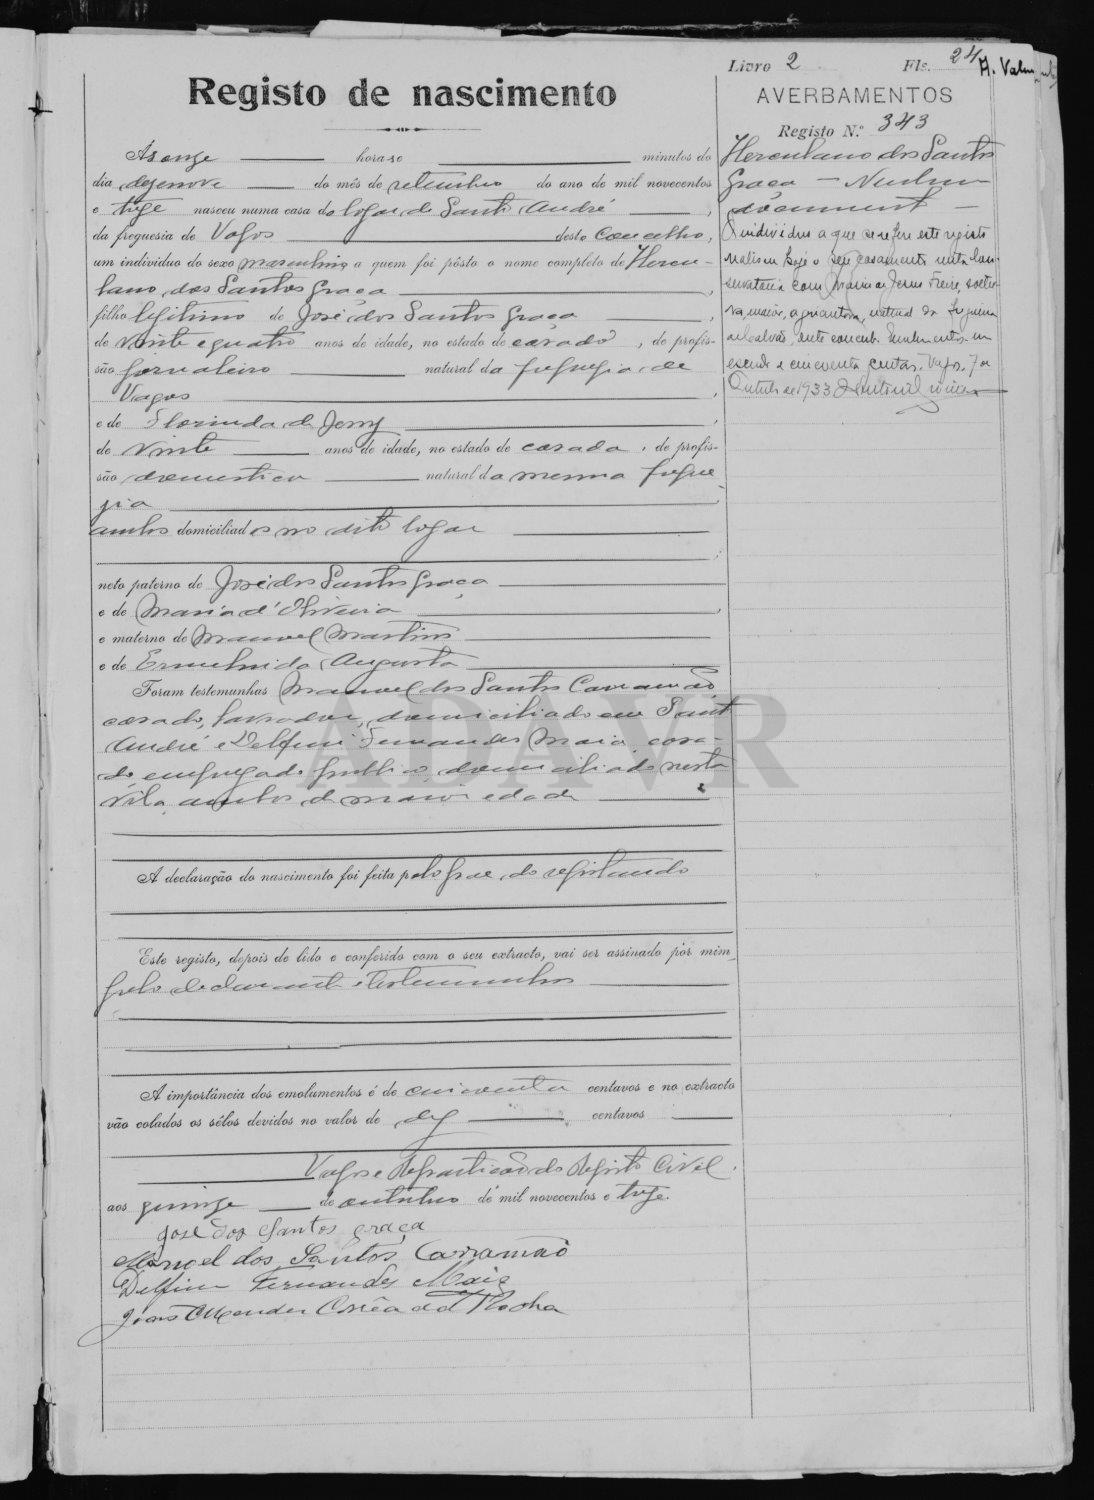 Livro 2 Fls. 24
Registo de nascimento
Ás onze horas e minutos do
dia dezenove do mês de setembro do ano de mil novecentos
e treze nasceu numa casa do logar de Santo André,
da freguesia de Vagos deste concelho,
um individuo do sexo masculino a quem foi pôsto o nome completo de Hercu-
lano dos Santos Graça,
filho legitimo de José dos Santos Graça,
de vinte e quatro anos de idade, no estado de casado, de profis-
são jornaleiro natural da freguezia de
Vagos,
e de Florinda de Jesus,
de vinte anos de idade, no estado de casada, de profis-
são domestica natural da mesma fregue-
zia
ambos domiciliados no dito logar
;
neto paterno de José dos Santos Graça
e de Maria d'Oliveira,
e materno de Manuel Martins
e de Ermelinda Augusta
Foram testemunhas Manuel dos Santos Carramão,
casado, lavrador, domiciliado em Santo
André e Delfim Fernandes Maia, casa-
do, empregado publico, domiciliado nesta
vila, ambos de maior edade
A declaração do nascimento foi feita pelo pae do registando
Este registo, depois de lido e conferido com o seu extracto, vai ser assinado por mim
pelo declarante e testemunhas
A importância dos emolumentos é de cincoenta centavos e no extracto
vão colados os sêlos devidos no valor de dez centavos
Vagos e Repartição do Registo Civil.
aos quinze de outubro de mil novecentos e treze.
José dos Santos Graça
Manoel dos Santos Carramão
Delfim Fernandes Maia
João Mendes Corrêa da Rocha
AVERBAMENTOS
Registo N.º 343
Herculano dos Santos
Graça — Nenhum
documento —
O individuo a que se refere este registo
realisou hoje o seu casamento nesta Con-
servatoria com Maria de Jesus Freire, soltei-
ra, maior, natural da freguesia
de Calvão, deste concelho. Emolumentos um
escudo e cincoenta centavos. Vagos, 7 de
Outubro de 1933
ADAVR